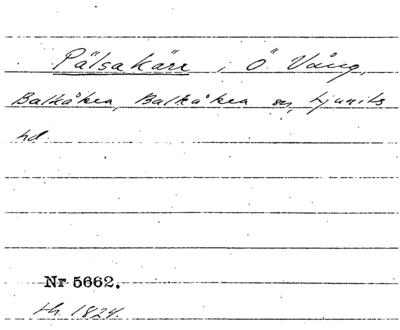 Pälsakärr i Ö. Vång,
Balkåkra, Balkåkra sn, Ljunits
hd.
Nr 5662.
th. 1824.